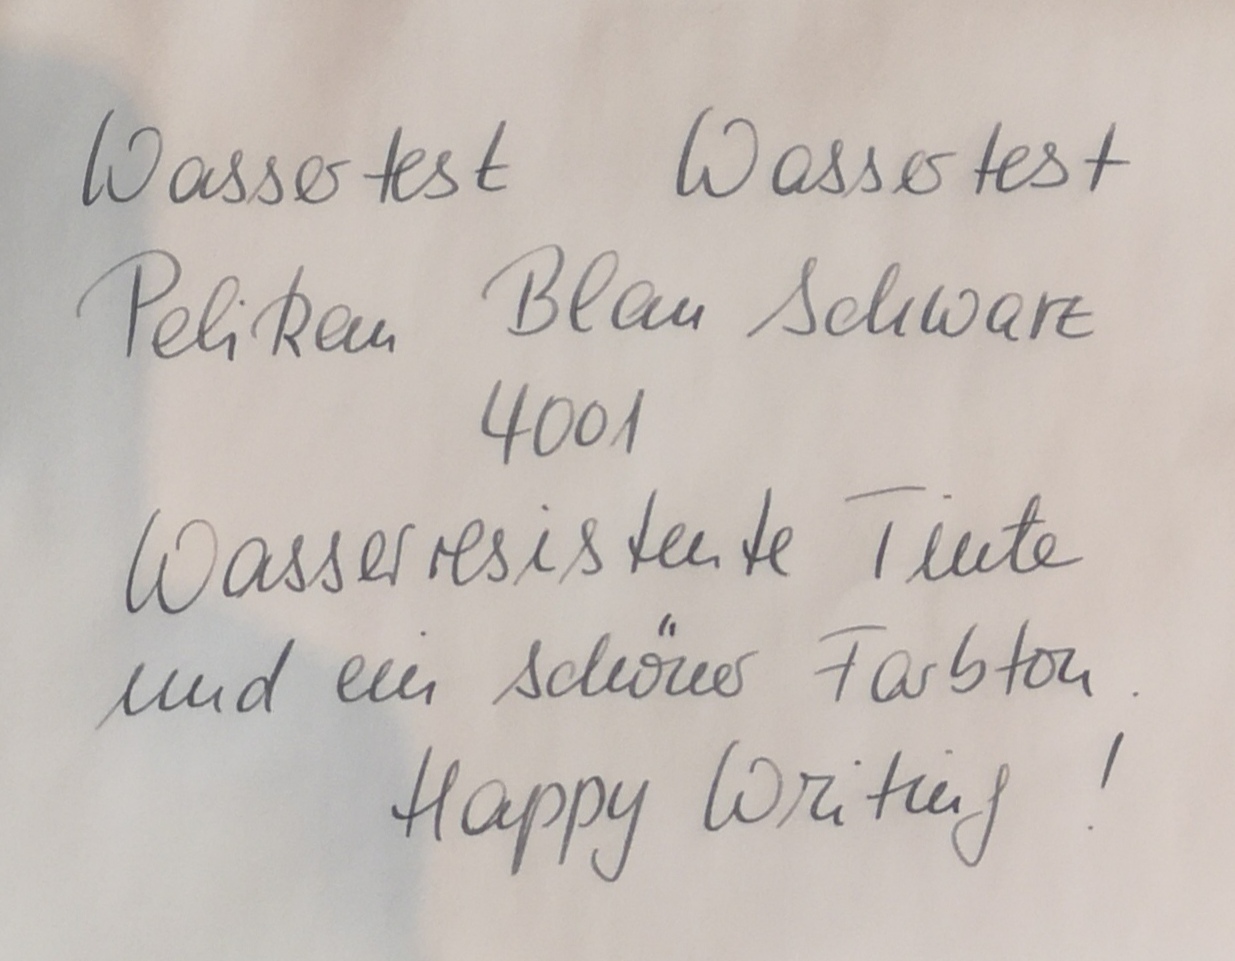 Wassertest Wassertest
Pelikan Blau Schwarz
4001
Wasserresistente Tinte
und ein schöner Farbton.
Happy Writing!